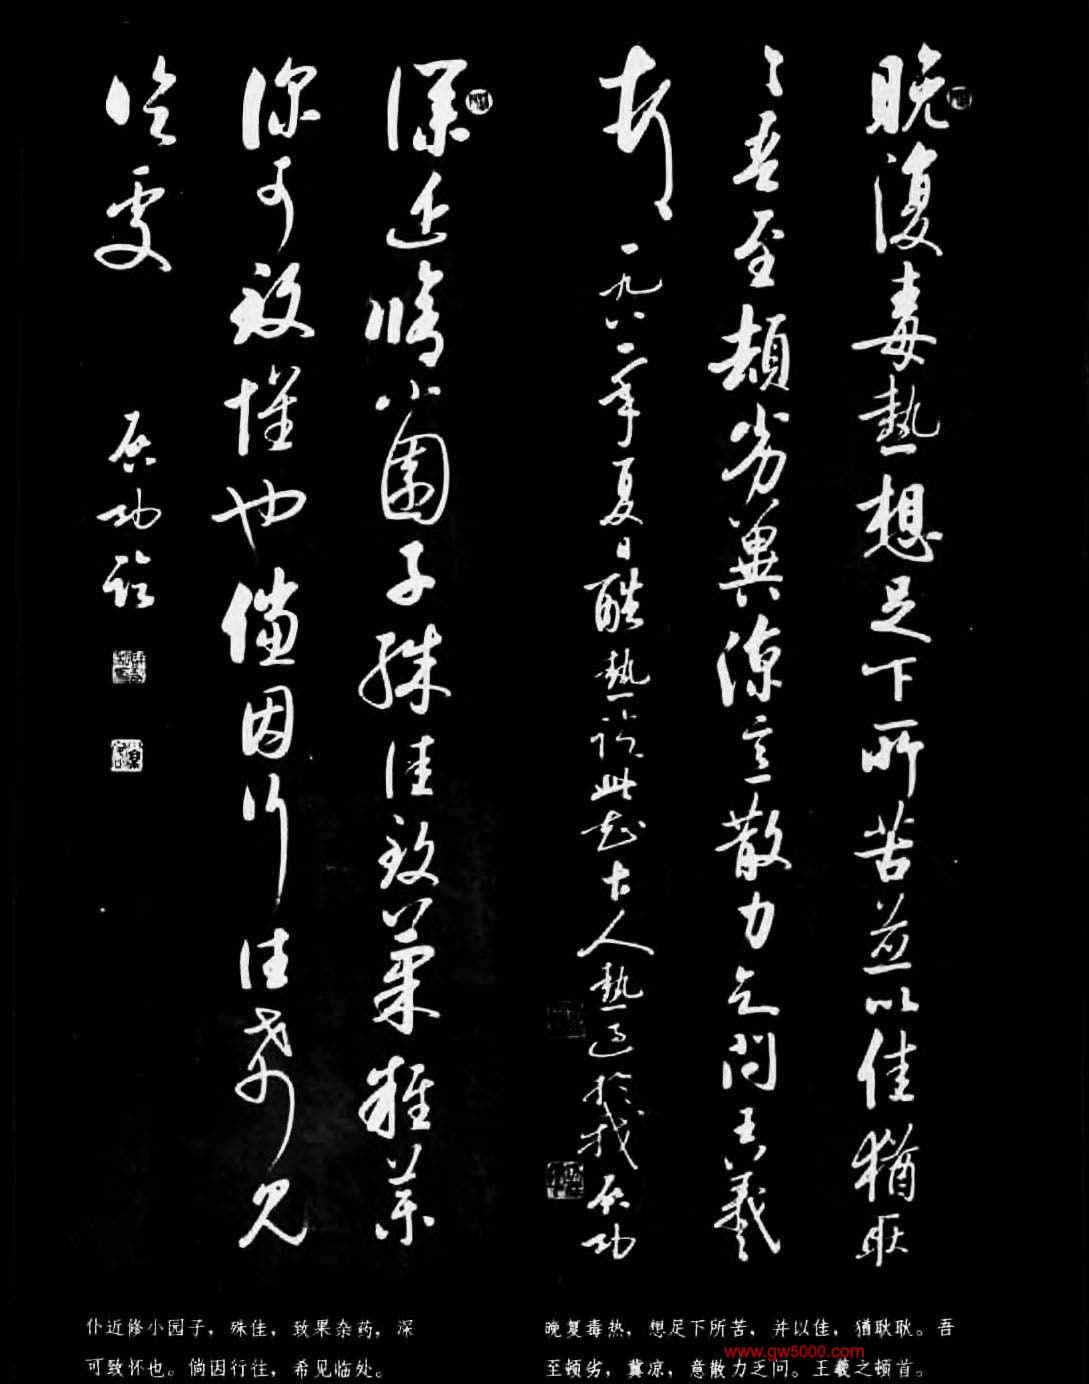 晚復毒熱想足下所苦並以佳猶耿
〻吾至頓劣冀涼意散力乏問王羲之
頓首 一九八二年夏日酷熱臨此知古人熱過於我 启功
僕近脩小園子殊佳致菓雜藥
深可致懷也儻因行往希見
臨處 启功臨
晚复毒热，想足下所苦，并以佳，猶耿耿。吾
至顿劣，冀凉，意散力乏问。王羲之顿首。
仆近修小园子，殊佳，致果杂药，深
可致怀也。倘因行往，希见临处。
www.gw5000.com